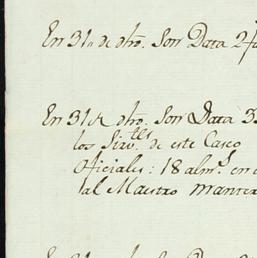 En 31,, de dho. Son Data 2
En 31 de dho. Son Data 3
los Sirv.tes de este Casco
Oficiales: 18 alm.s en
tal Maestro mante